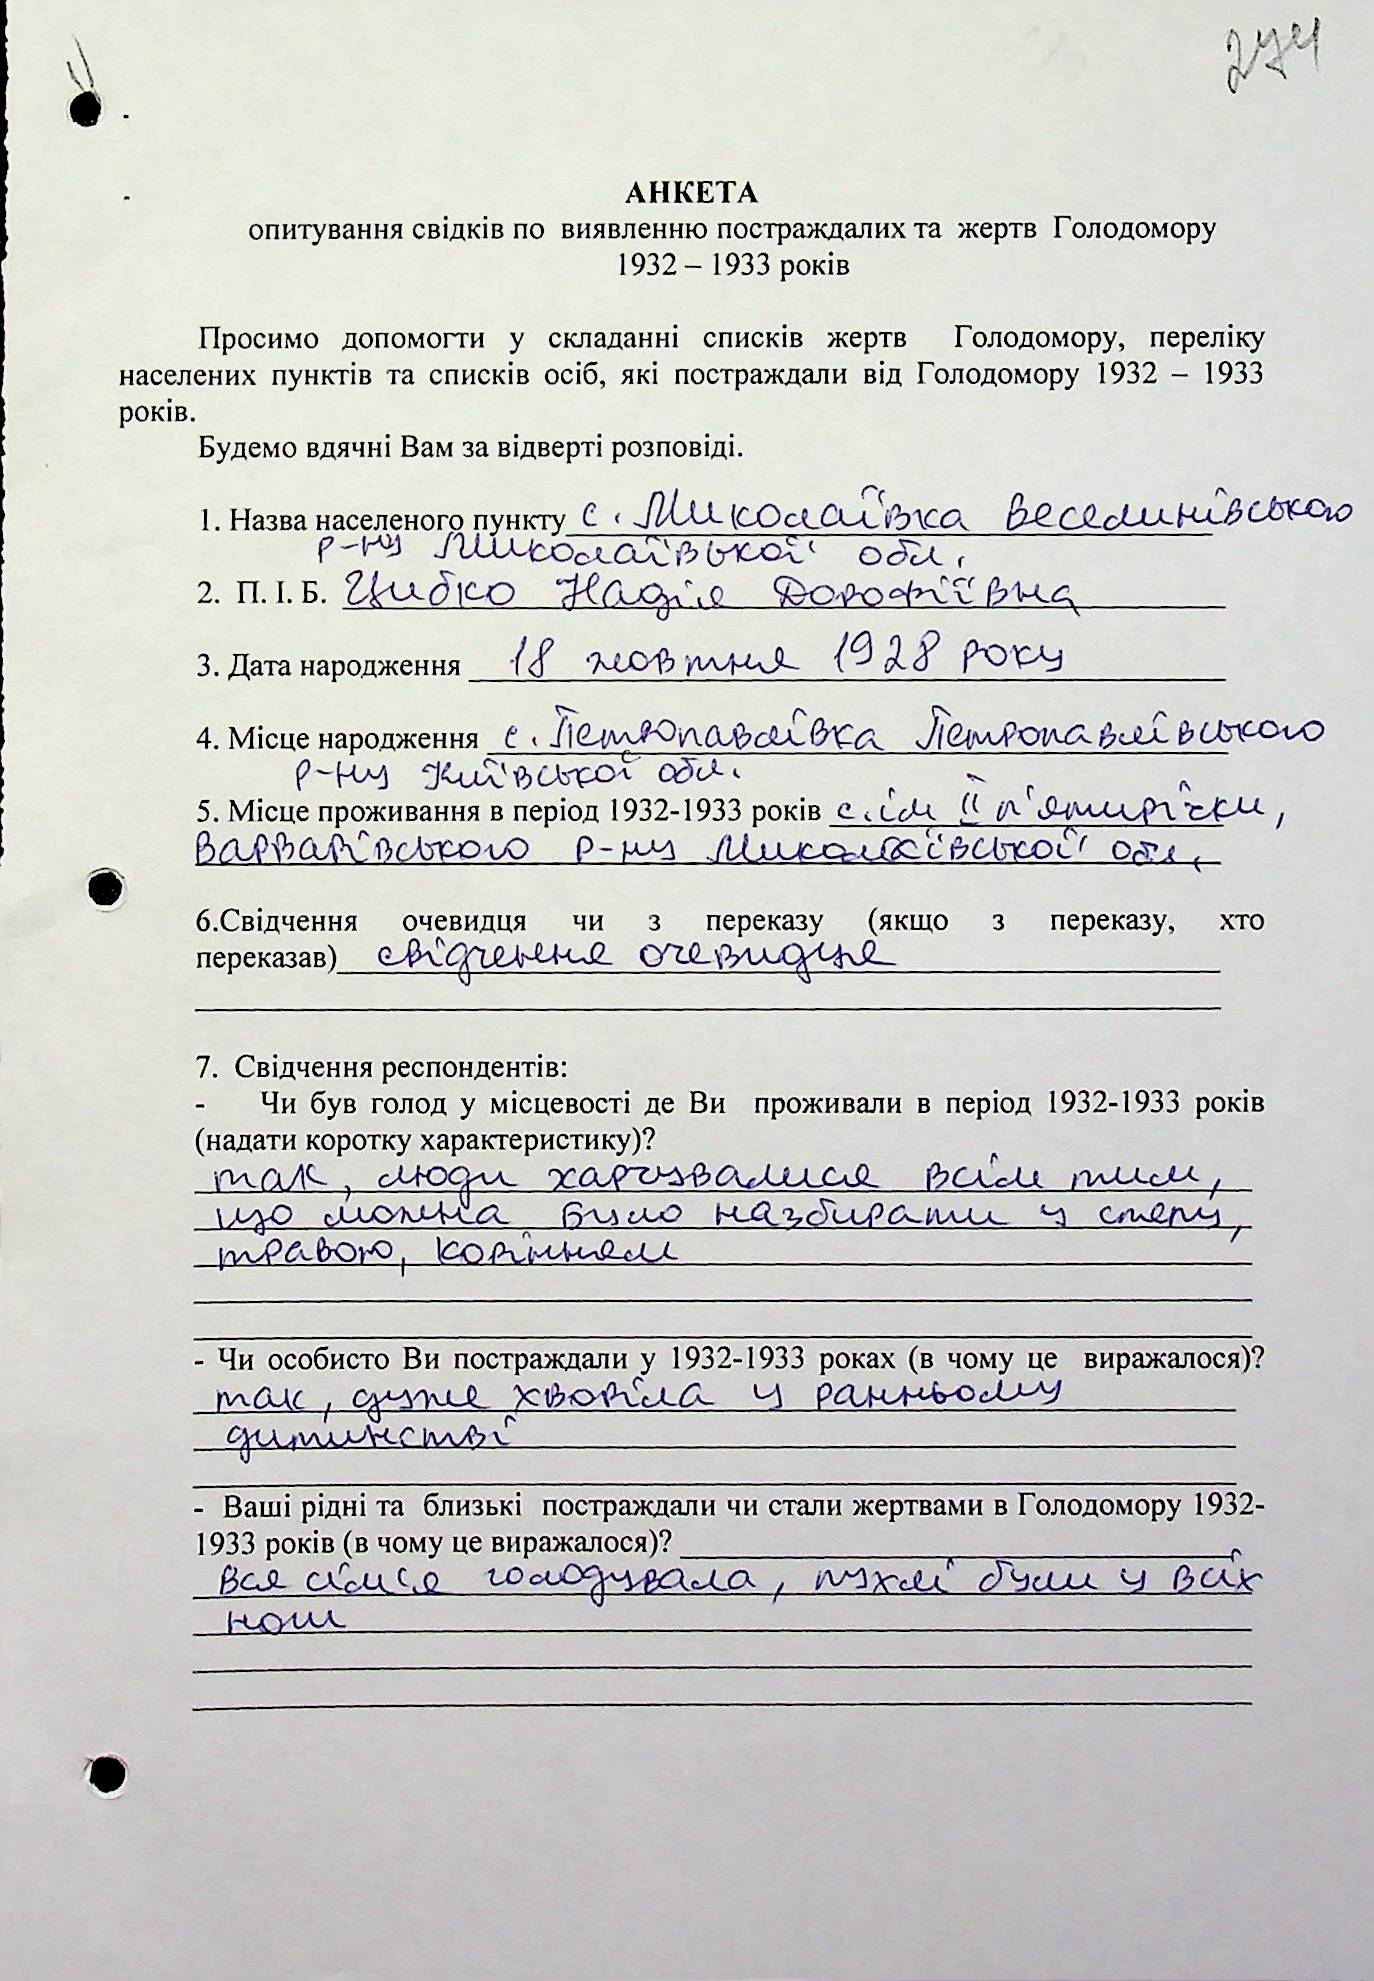 274
АНКЕТА
опитування свідків по виявленню постраждалих та жертв Голодомору
1932 – 1933 років
Просимо допомогти у складанні списків жертв Голодомору, переліку
населених пунктів та списків осіб, які постраждали від Голодомору 1932 – 1933
років.
Будемо вдячні Вам за відверті розповіді.
1. Назва населеного пункту с. Миколаївка Веселинівського
р-ну Миколаївської обл.
2. П. І. Б. Цибко Надія Дорофіївна
3. Дата народження 18 жовтня 1928 року
4. Місце народження с. Петропавлівка Петропавлівського
р-ну Київської обл.
5. Місце проживання в період 1932-1933 років с. ім II п'ятирічки,
Варварівського р-ну Миколаївської обл.
6.Свідчення очевидця чи з переказу (якщо з переказу, хто
переказав) свідчення очевидця
7. Свідчення респондентів:
- Чи був голод у місцевості де Ви проживали в період 1932-1933 років
(надати коротку характеристику)?
так, люди харчувалися всім тим,
що можна було назбирати у степу,
травою, корінням
- Чи особисто Ви постраждали у 1932-1933 роках (в чому це виражалося)?
так, дуже хворіла у ранньому
дитинстві
- Ваші рідні та близькі постраждали чи стали жертвами в Голодомору 1932-
1933 років (в чому це виражалося)?
вся сім'я голодувала, пухлі були у всіх
ноги